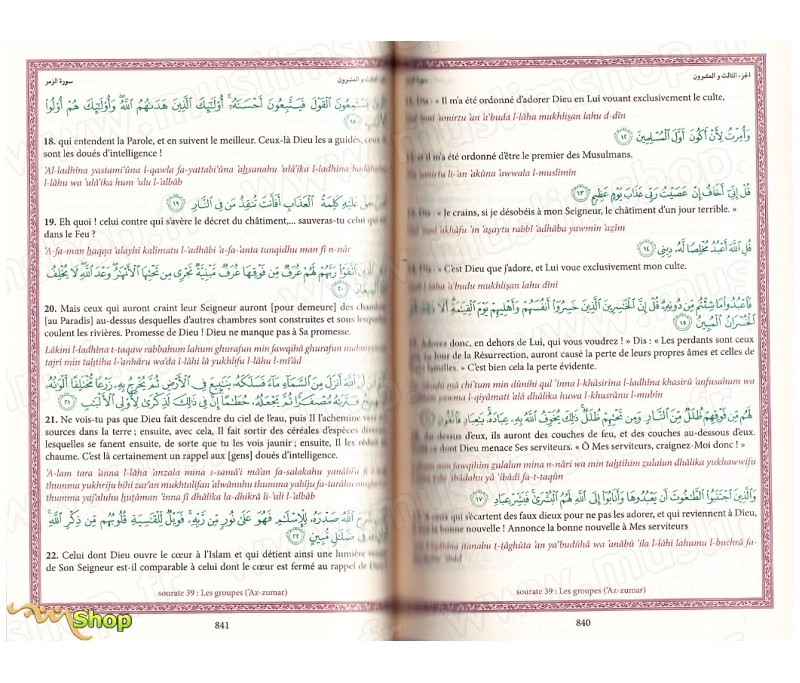 الجزء الثالث و العشرون
« Il m'a été ordonné d'adorer Dieu en Lui vouant exclusivement le culte,
'umirtu 'an 'a'buda l-lâha mukhliṣan lahu d-dîn
وَأُمِرْتُ لِأَنْ أَكُونَ أَوَّلَ الْمُسْلِمِينَ ١٢
et il m'a été ordonné d'être le premier des Musulmans.
'umirtu li-'an 'akûna 'awwala l-muslimîn
قُلْ إِنِّي أَخَافُ إِنْ عَصَيْتُ رَبِّي عَذَابَ يَوْمٍ عَظِيمٍ ١٣
Dis : « Je crains, si je désobéis à mon Seigneur, le châtiment d'un jour terrible. »
'akhâfu 'in 'aṣaytu rabbî 'adhâba yawmin 'aẓîm
قُلِ اللَّهَ أَعْبُدُ مُخْلِصًا لَّهُ دِينِي ١٤
Dis : « C'est Dieu que j'adore, et Lui voue exclusivement mon culte.
l-lâha 'a'budu mukhliṣan lahu dînî
فَاعْبُدُوا مَا شِئْتُم مِّن دُونِهِ قُلْ إِنَّ الْخَاسِرِينَ الَّذِينَ خَسِرُوا أَنفُسَهُمْ وَأَهْلِيهِمْ يَوْمَ الْقِيَامَةِ أَلَا
الْخُسْرَانُ الْمُبِينُ ١٥
Adorez donc, en dehors de Lui, qui vous voudrez ! » Dis : « Les perdants sont ceux
au Jour de la Résurrection, auront causé la perte de leurs propres âmes et celles de
familles. » C'est bien cela la perte évidente.
mâ chi'tum min dûnihi qul 'inna l-khâsirîna l-ladhîna khasirû 'anfusahum wa
yawma l-qiyâmati 'alâ dhâlika huwa l-khusrânu l-mubîn
لَهُم مِّن فَوْقِهِمْ ظُلَلٌ مِّنَ النَّارِ وَمِن تَحْتِهِمْ ظُلَلٌ ذَٰلِكَ يُخَوِّفُ اللَّهُ بِهِ عِبَادَهُ يَا عِبَادِ فَاتَّقُونِ
Au-dessus d'eux, ils auront des couches de feu, et des couches au-dessous d'eux.
dont Dieu menace Ses serviteurs. « Ô Mes serviteurs, craignez-Moi donc ! »
min fawqihim ẓulalun mina n-nâri wa min taḥtihim ẓulalun dhâlika yukhawwifu
bihi 'ibâdahu yâ 'ibâdi fa-t-taqûn
وَالَّذِينَ اجْتَنَبُوا الطَّاغُوتَ أَن يَعْبُدُوهَا وَأَنَابُوا إِلَى اللَّهِ لَهُمُ الْبُشْرَىٰ فَبَشِّرْ عِبَادِ ١٧
qui s'écartent des faux dieux pour ne pas les adorer, et qui reviennent à Dieu,
bonne nouvelle ! Annonce la bonne nouvelle à Mes serviteurs
jtanabu ṭ-ṭâghûta 'an ya'budûhâ wa 'anâbû 'ila l-lâhi lahumu l-buchrâ fa-
'ibâd
sourate 39 : Les groupes ('Az-zumar)
840
الثالث و العشرون
سورة الزمر
يَسْتَمِعُونَ الْقَوْلَ فَيَتَّبِعُونَ أَحْسَنَهُ أُولَٰئِكَ الَّذِينَ هَدَاهُمُ اللَّهُ وَأُولَٰئِكَ هُمْ أُولُو
١٨
18. qui entendent la Parole, et en suivent le meilleur. Ceux-là Dieu les a guidés,
sont les doués d'intelligence !
'Al-ladhîna yastami'ûna l-qawla fa-yattabi'ûna 'aḥsanahu 'ulâ'ika l-ladhîna hadâhum
l-lâhu wa 'ulâ'ika hum 'ulu l-albâb
حَقَّ عَلَيْهِ كَلِمَةُ الْعَذَابِ أَفَأَنتَ تُنقِذُ مَن فِي النَّارِ ١٩
19. Eh quoi ! celui contre qui s'avère le décret du châtiment,... sauveras-tu celui qui est
dans le Feu ?
'A-fa-man ḥaqqa 'alayhi kalimatu l-'adhâbi 'a-fa-'anta tunqidhu man fi n-nâr
اتَّقَوْا رَبَّهُمْ لَهُمْ غُرَفٌ مِّن فَوْقِهَا غُرَفٌ مَّبْنِيَّةٌ تَجْرِي مِن تَحْتِهَا الْأَنْهَارُ وَعْدَ اللَّهِ لَا يُخْلِفُ
٢٠
20. Mais ceux qui auront craint leur Seigneur auront [pour demeure] des chambres
[au Paradis] au-dessus desquelles d'autres chambres sont construites et sous lesquelles
coulent les rivières. Promesse de Dieu ! Dieu ne manque pas à Sa promesse.
Lâkini l-ladhîna t-taqaw rabbahum lahum ghurafun min fawqihâ ghurafun mabniyyatun
tajrî min taḥtiha l-'anhâru wa'da l-lâhi lâ yukhlifu l-lâhu l-mî'âd
اللَّهَ أَنزَلَ مِنَ السَّمَاءِ مَاءً فَسَلَكَهُ يَنَابِيعَ فِي الْأَرْضِ ثُمَّ يُخْرِجُ بِهِ زَرْعًا مُّخْتَلِفًا أَلْوَانُهُ
فَتَرَاهُ مُصْفَرًّا ثُمَّ يَجْعَلُهُ حُطَامًا إِنَّ فِي ذَٰلِكَ لَذِكْرَىٰ لِأُولِي الْأَلْبَابِ ٢١
21. Ne vois-tu pas que Dieu fait descendre du ciel de l'eau, puis Il l'achemine vers
sources dans la terre ; ensuite, avec cela, Il fait sortir des céréales d'espèces diverses,
lesquelles se fanent ensuite, de sorte que tu les vois jaunir ; ensuite, Il les réduit
chaume. C'est là certainement un rappel aux [gens] doués d'intelligence.
'A-lam tara 'anna l-lâha 'anzala mina s-samâ'i mâ'an fa-salakahu yanâbî'a fi l-
thumma yukhriju bihi zar'an mukhtalifan 'alwânuhu thumma yahîju fa-tarâhu
thumma yaj'aluhu ḥuṭâman 'inna fî dhâlika la-dhikrâ li-'uli l-'albâb
شَرَحَ اللَّهُ صَدْرَهُ لِلْإِسْلَامِ فَهُوَ عَلَىٰ نُورٍ مِّن رَّبِّهِ فَوَيْلٌ لِّلْقَاسِيَةِ قُلُوبُهُم مِّن ذِكْرِ اللَّهِ
فِي ضَلَالٍ مُّبِينٍ ٢٢
22. Celui dont Dieu ouvre le cœur à l'Islam et qui détient ainsi une lumière
de Son Seigneur est-il comparable à celui dont le cœur est fermé au rappel de
sourate 39 : Les groupes ('Az-zumar)
841
Shop